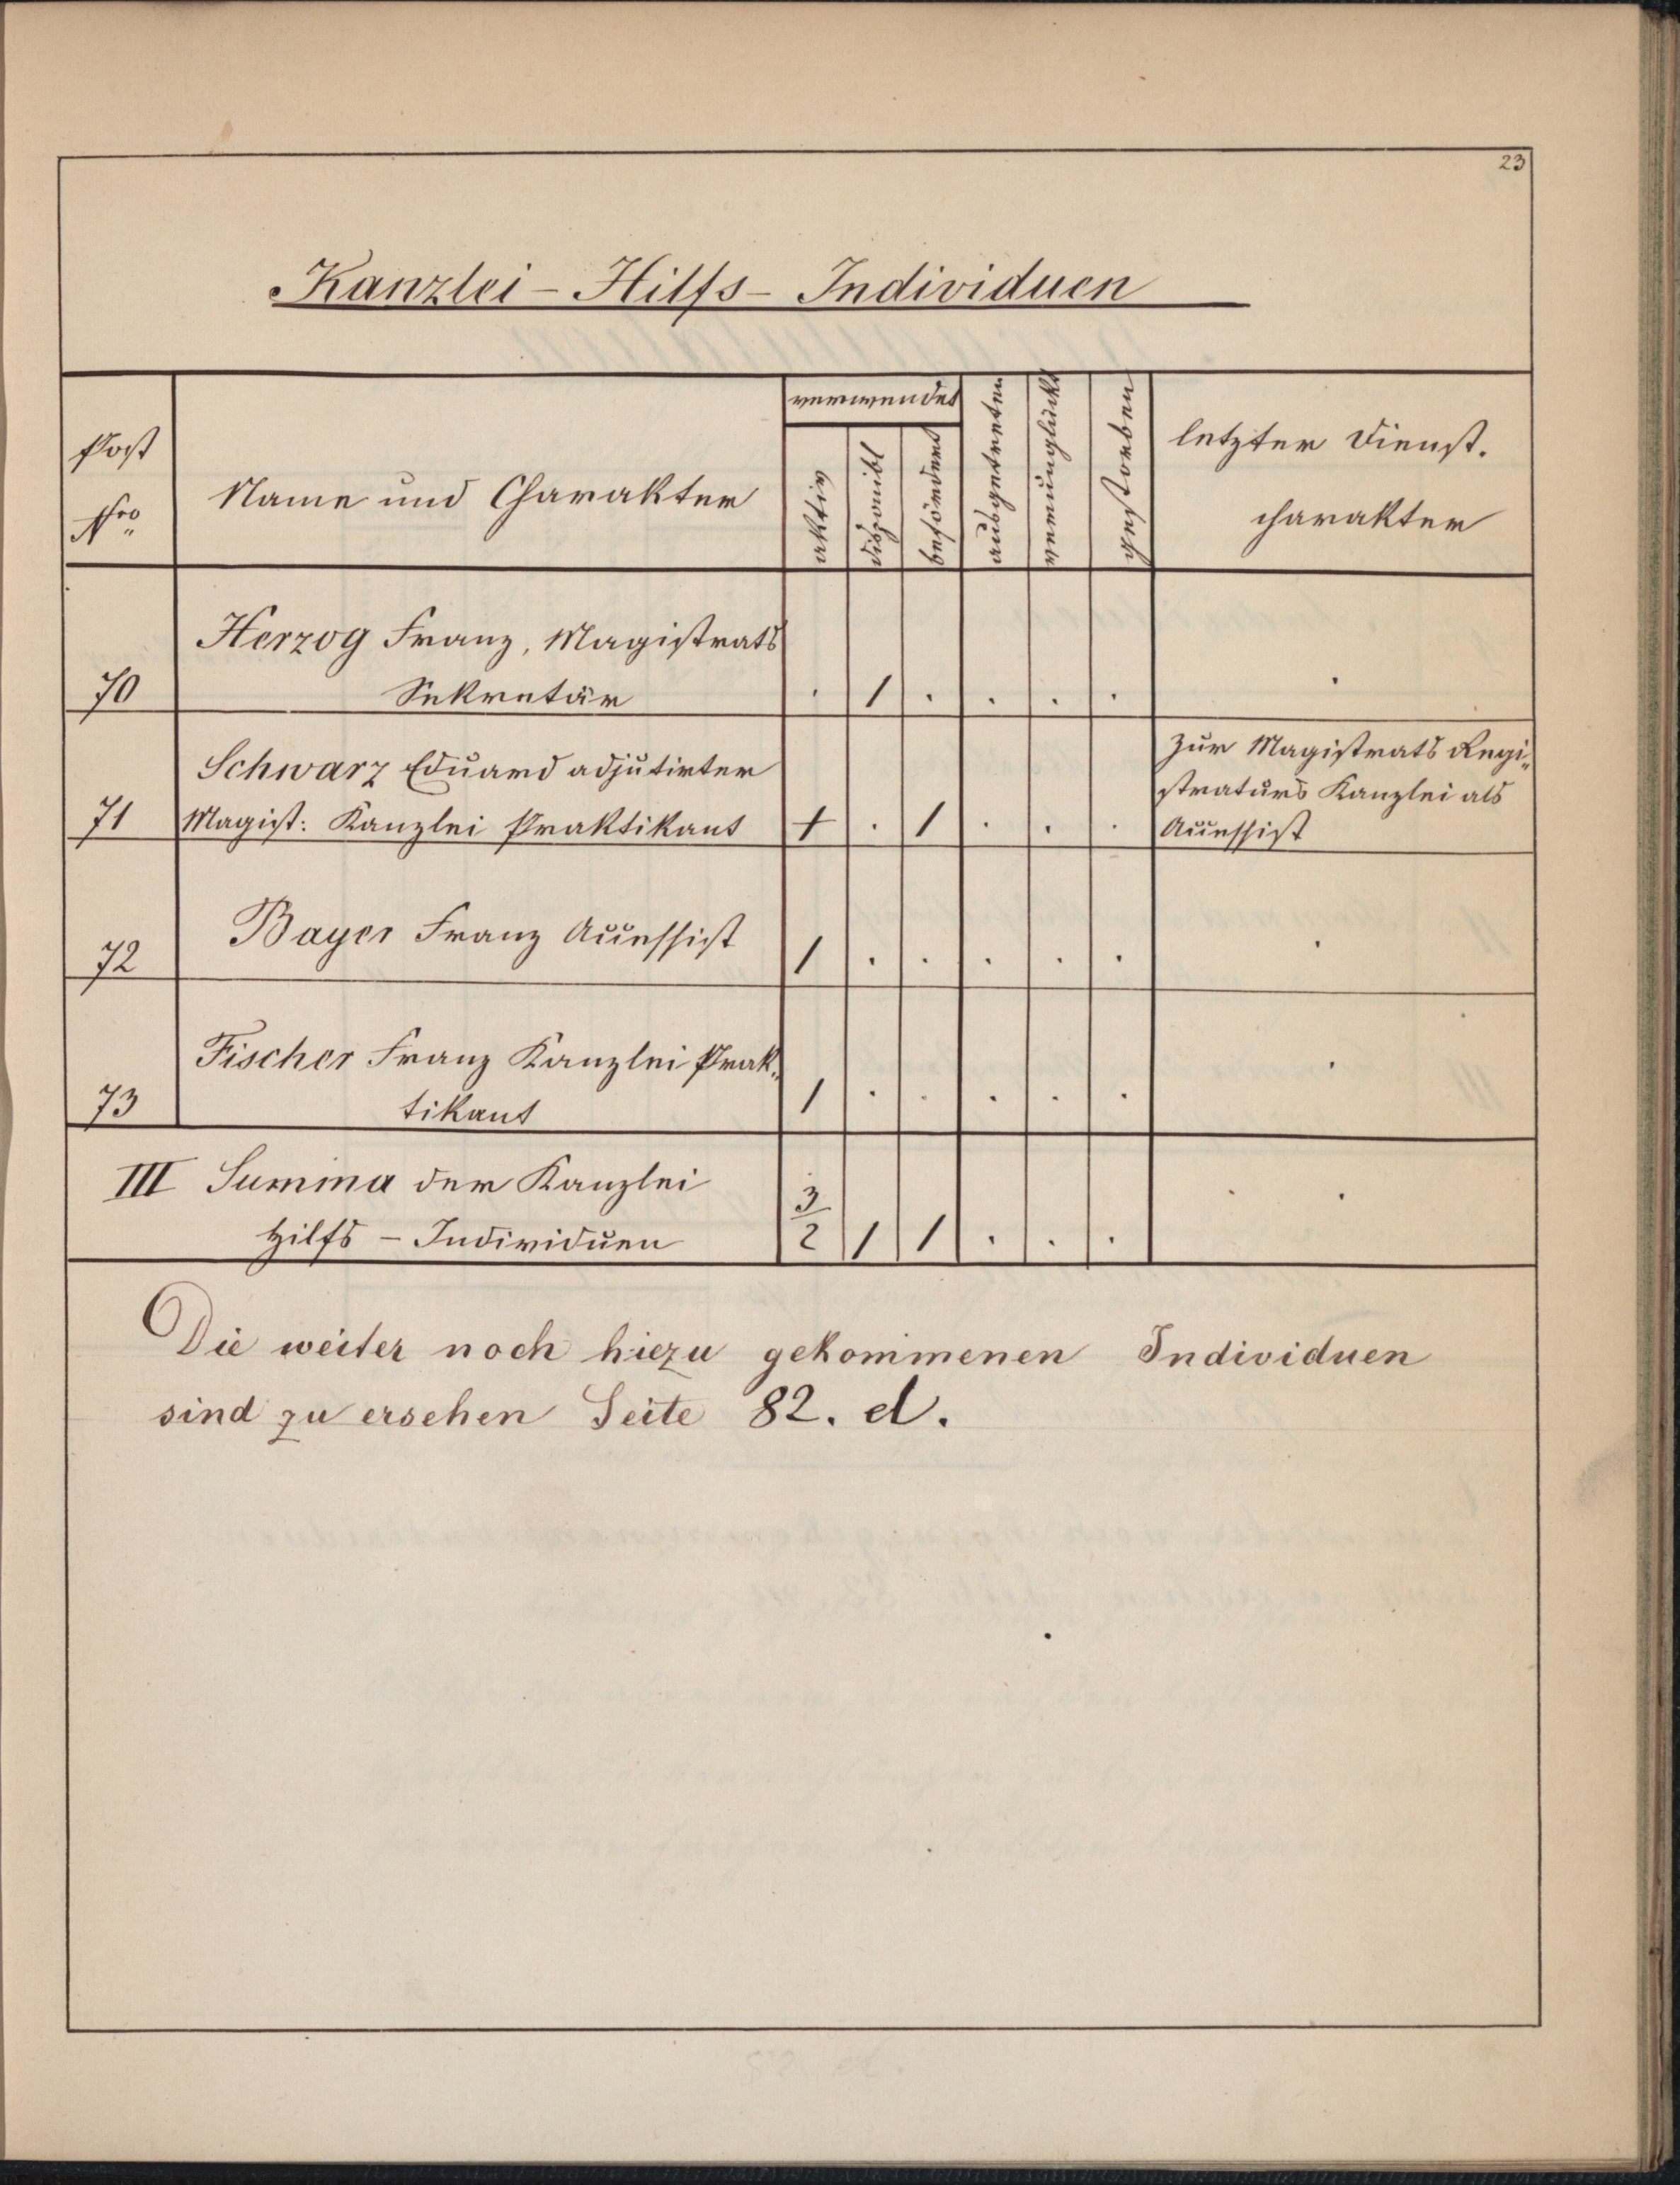 23
Kanzlei - Hilfs - Individuen
Post
Nro
Name und Charakter
verwendet
aktiv
disponibl
befördert
ausgetreten
verunglückt
gestorben
letzter Dienst.
charakter
70
Herzog Franz, Magistrats
Sekretär
. 1 . . . . .
71
Schwarz Eduard adjutirter
Magist: Kanzlei Praktikant
+ . 1 . . .
Zur Magistrats Regi„
straturs Kanzlei als
Accessist
72
Bayer Franz Accessist
1 . . . . . .
73
Fischer Franz Kanzlei Prak„
tikant
1 . . . . . .
III Summa der Kanzlei
Hilfs - Individuen
3
2 1 1 . . . .
Die weiter noch hiezu gekommenen Individuen
sind zu ersehen Seite 82. d.